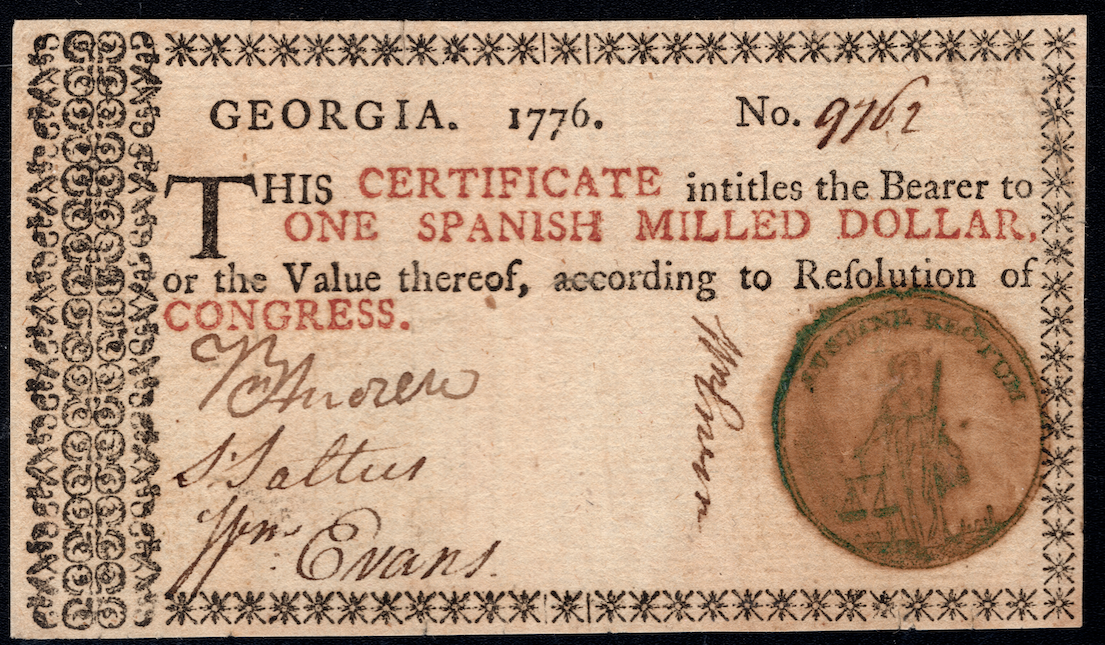 GEORGIA. 1776. No. 9762
THIS CERTIFICATE intitles the Bearer to
ONE SPANISH MILLED DOLLAR,
or the Value thereof, according to Reſolution of
CONGRESS.
SUSTINE RECTUM
S Saltus
Wm Evans.